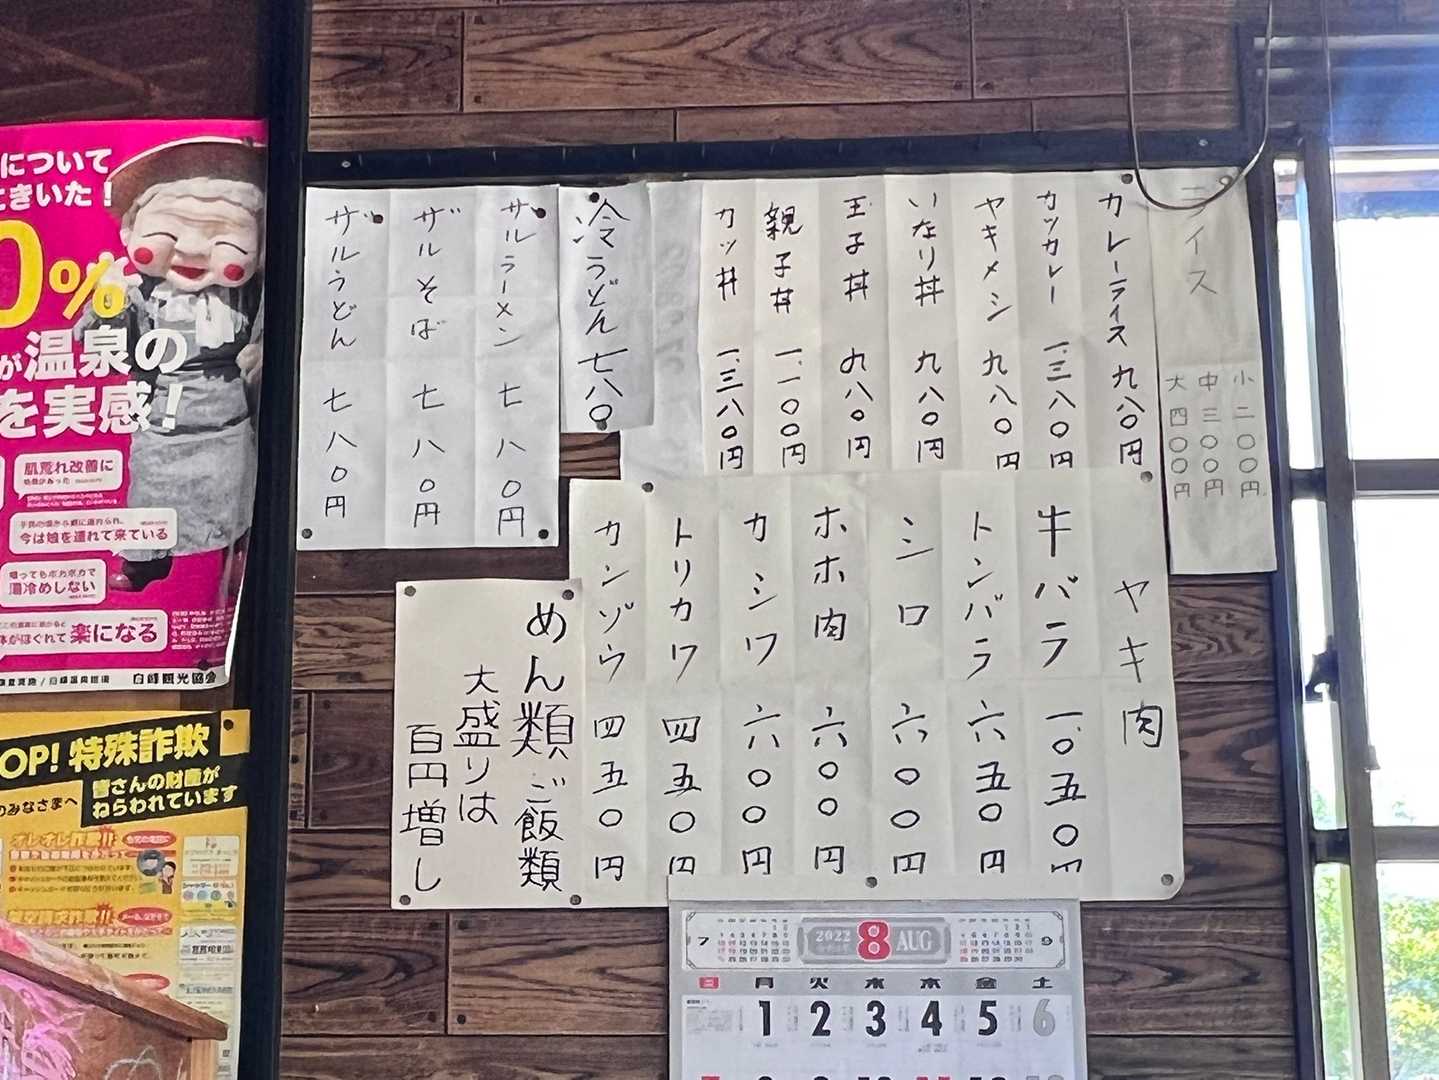 ライス
小 二〇〇円
中 三〇〇円
大 四〇〇円
カレーライス 九八〇円
カツカレー 一、三八〇円
ヤキメシ 九八〇円
いなり丼 九八〇円
玉子丼 九八〇円
親子丼 一、一〇〇円
カツ丼 一、三八〇円
冷うどん 七八〇
ザルラーメン 七八〇円
ザルそば 七八〇円
ザルうどん 七八〇円
ヤキ肉
牛バラ 一、〇五〇円
トンバラ 六五〇円
シロ 六〇〇円
ホホ肉 六〇〇円
カシワ 六〇〇円
トリカワ 四五〇円
カンゾウ 四五〇円
めん類ご飯類
大盛りは
百円増し
について
きいた!
0%
が温泉の
を実感!
肌荒れ改善に
今は娘を連れて来ている
帰ってもポカポカで
湯冷めしない
体がほぐれて楽になる
OP!特殊詐欺
皆さんの財産が
ねらわれています
のみなさまへ
オレオレ詐欺!!
7 2022 8 AUG 9
日 月 火 水 木 金 土
1 2 3 4 5 6